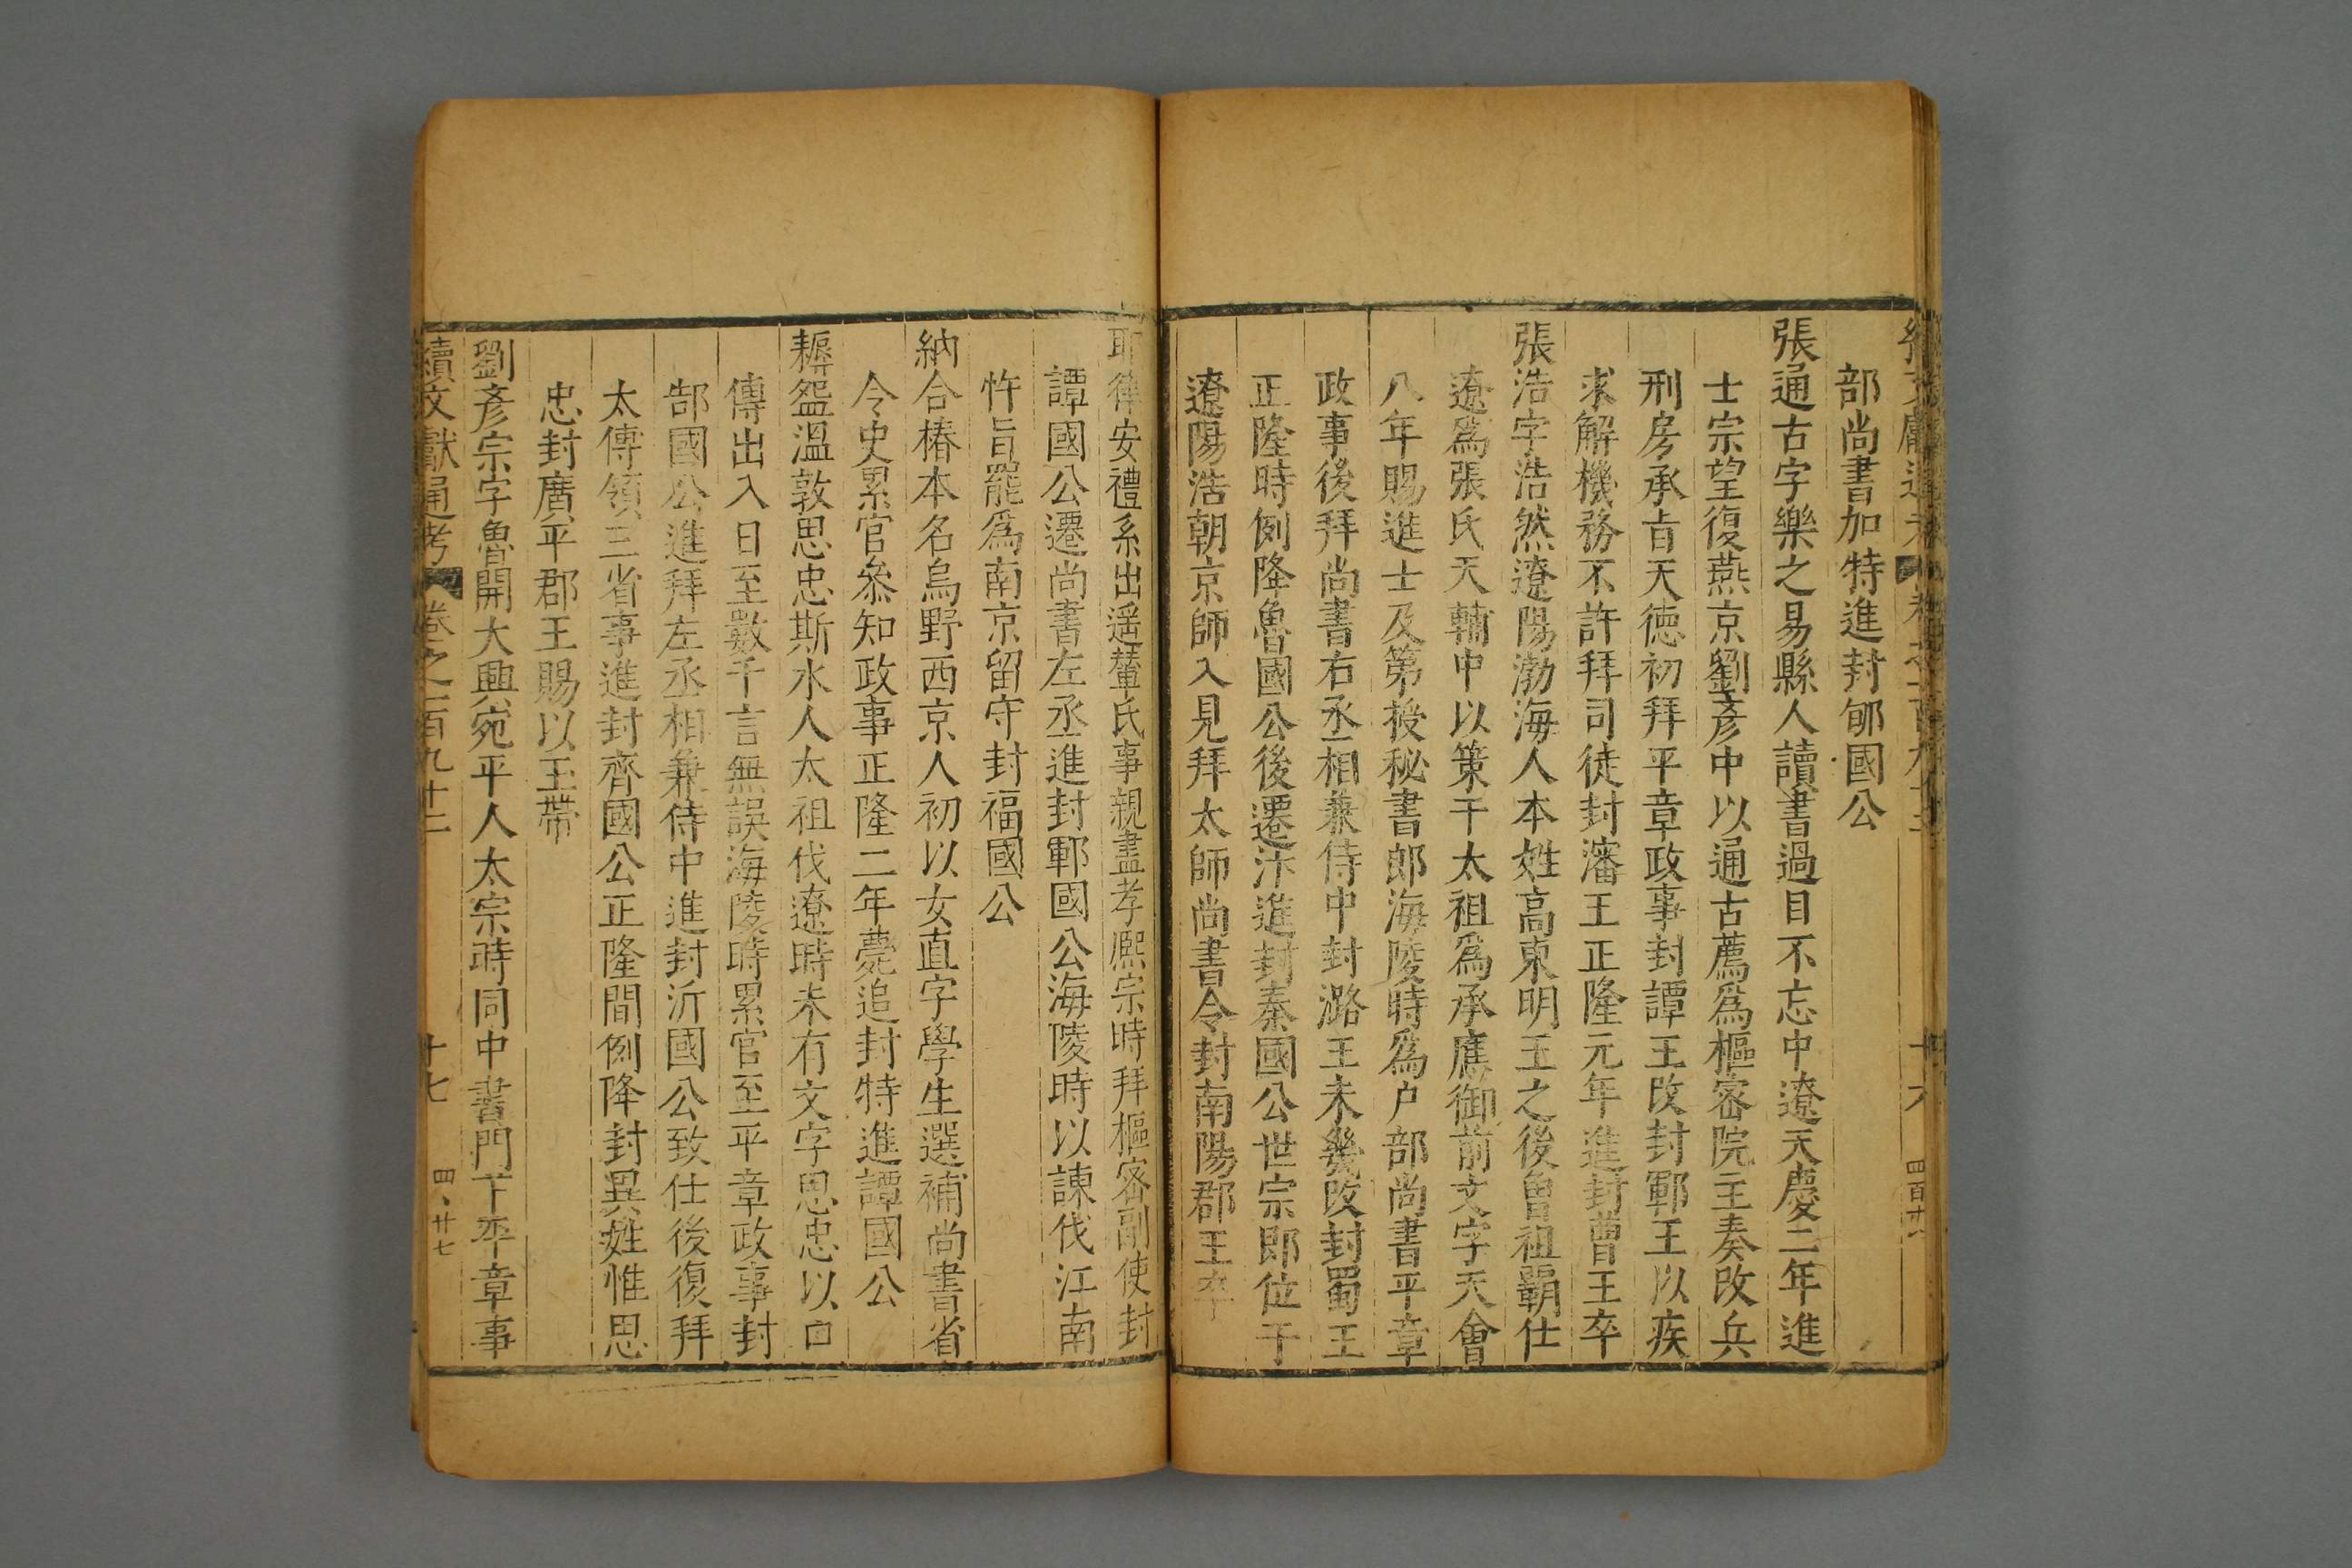 部尚書加特進封郇國公
張通古字樂之易縣人讀書過目不忘中遼天慶二年進
士宗望復燕京劉彥中以通古薦爲樞密院主奏改兵
刑房承旨天德初拜平章政事封譚王改封鄆王以疾
求解機務不許拜司徒封瀋王正隆元年進封曹王卒
張浩字浩然遼陽渤海人本姓高東明王之後曾祖霸仕
遼爲張氏天輔中以策干太祖爲承應御前文字天會
八年賜進士及第授秘書郎海陵時爲户部尚書平章
政事後拜尚書右丞相兼侍中封潞王未幾改封蜀王
正隆時例降魯國公後遷汴進封秦國公世宗即位于
遼陽浩朝京師入見拜太師尚書令封南陽郡王卒
耶律安禮系出遥輦氏事親盡孝熙宗時拜樞密副使封
譚國公遷尚書左丞進封鄆國公海陵時以諫伐江南
忤旨罷爲南京留守封福國公
納合椿本名烏野西京人初以女直字學生選補尚書省
令史累官叅知政事正隆二年薨追封特進譚國公
耨盌溫敦思忠斯水人太祖伐遼時未有文字思忠以口
傳出入日至數千言無誤海陵時累官至平章政事封
郜國公進拜左丞相兼侍中進封沂國公致仕後復拜
太傅領三省事進封齊國公正隆間例降封異姓惟思
忠封廣平郡王賜以玉帶
劉彥宗字魯開大興宛平人太宗時同中書門下平章事
續文獻通考 卷之一百九十二 十七 四、廿七